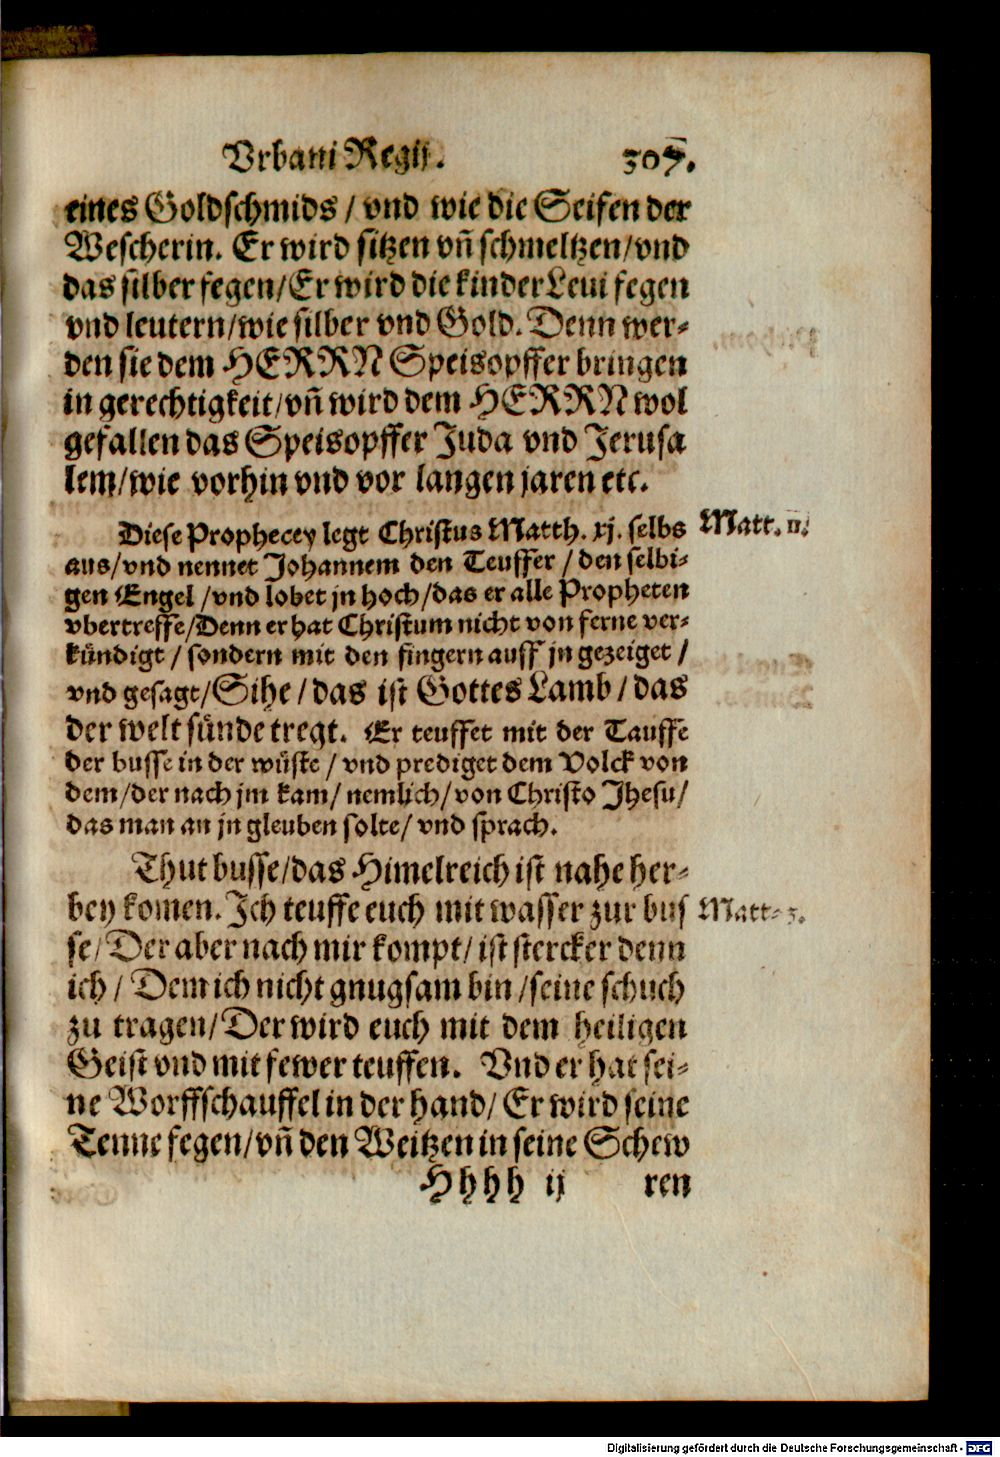 Vrbani Regij. 307.
eines Goldschmids / vnd wie die Seifen der
Wescherin. Er wird sitzen vñ schmeltzen/vnd
das silber fegen/Er wird die kinder Leui fegen
vnd leutern/wie silber vnd Gold. Denn wer-
den sie dem HERRN Speisopffer bringen
in gerechtigkeit/vñ wird dem HERRN wol
gefallen das Speisopffer Juda vnd Jerusa
lem/wie vorhin vnd vor langen jaren etc.
Diese Prophecey legt Christus Matth. xj. selbs
Matt. 11.
aus/vnd nennet Johannem den Teuffer / den selbi-
gen Engel /vnd lobet jn hoch/das er alle Propheten
vbertreffe/Denn er hat Christum nicht von ferne ver-
kündigt / sondern mit den fingern auff jn gezeiget /
vnd gesagt/Sihe / das ist Gottes Lamb / das
der welt sünde tregt. Er teuffet mit der Tauffe
der busse in der wüste / vnd prediget dem Volck von
dem/der nach jm kam/ nemlich/von Christo Jhesu/
das man an jn gleuben solte/ vnd sprach.
Thut busse/das Himelreich ist nahe her-
bey komen. Ich teuffe euch mit wasser zur bus
Matt. 3.
se/Der aber nach mir kompt/ist stercker denn
ich / Dem ich nicht gnugsam bin /seine schuch
zu tragen/Der wird euch mit dem heiligen
Geist vnd mit fewer teuffen. Vnd er hat sei-
ne Worffschauffel in der hand/ Er wird seine
Tenne fegen/vñ den Weitzen in seine Schew
Hhhh ij ren
Digitalisierung gefördert durch die Deutsche Forschungsgemeinschaft - DFG